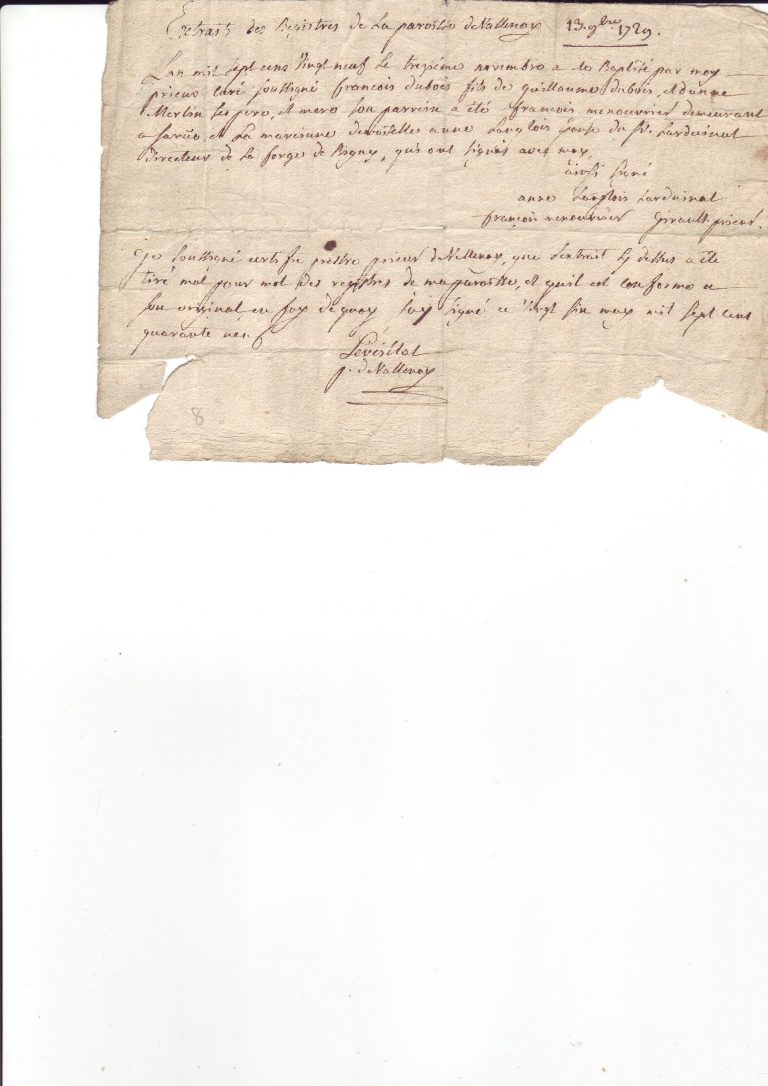 Extrait des Registres de La paroisse de Vallenay 13 9bre 1729.
L'an mil sept cens Vingt neuf le treziéme novembre a été Baptisé par moy
prieur curé soussigné françois dubois fils de guillaume dubois, et d'anne
Merlin ses pere, et mere son parrein a été françois menouvrier demeurant
a et La mareinne demoiselles anne Langlois épouse du Sr. Larduinat
Directeur de La forges de Bigny, qui ont signés avec moy,
ainsi signé
anne Langlois Larduinat
françois menouvrier Girault prieur.
Je soussigné certifie prestre prieur de Vallenay, que L'extrait cy dessus a été
tiré mot pour mot des registres de ma paroisse, et qu'il est conforme a
son original en foy de quoy j'ay signé a Vingt sept cent
quarante
p. de Vallenay
8